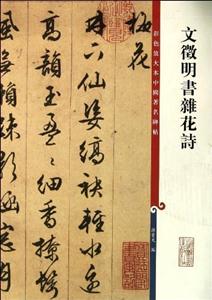 文徵明書雜花詩
彩色放大本中國著名碑帖
孫寶文 編
梅花
林下仙姿縞袂輕水邊
高韻玉盈〻細香撩